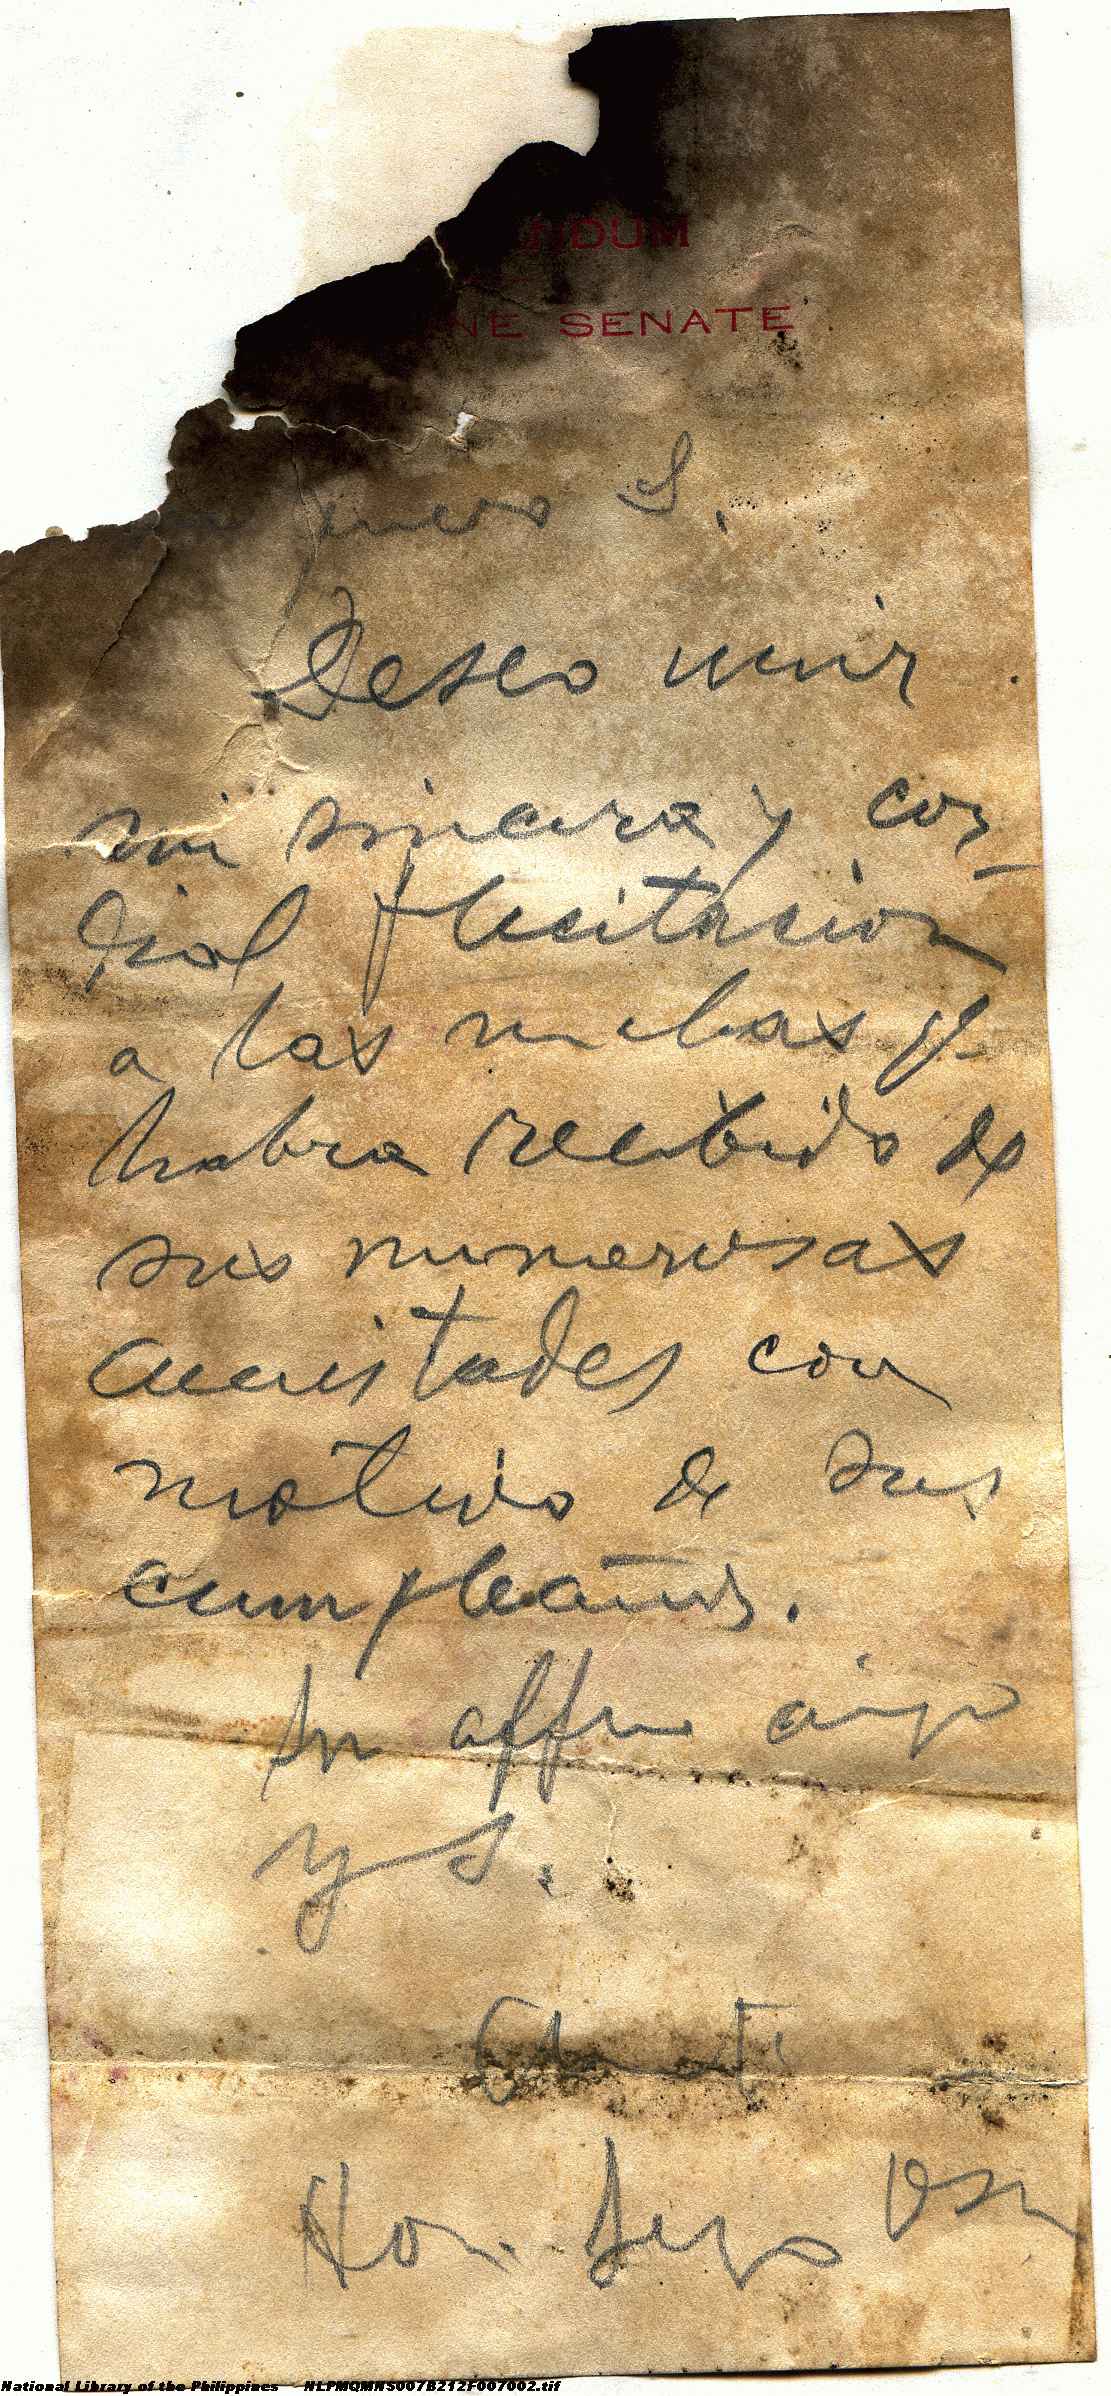 NDUM
NE SENATE
Deseo unir
mi sincera y cor-
dial felicitacion
a las muchas q.
habra recibido de
sus numerosas
amistades con
motivo de sus
cumpleaños.
Su affmo amigo
y S.
Hon. Sergio Osm
National Library of the Philippines NLPMQMNS007B212F007002.tif